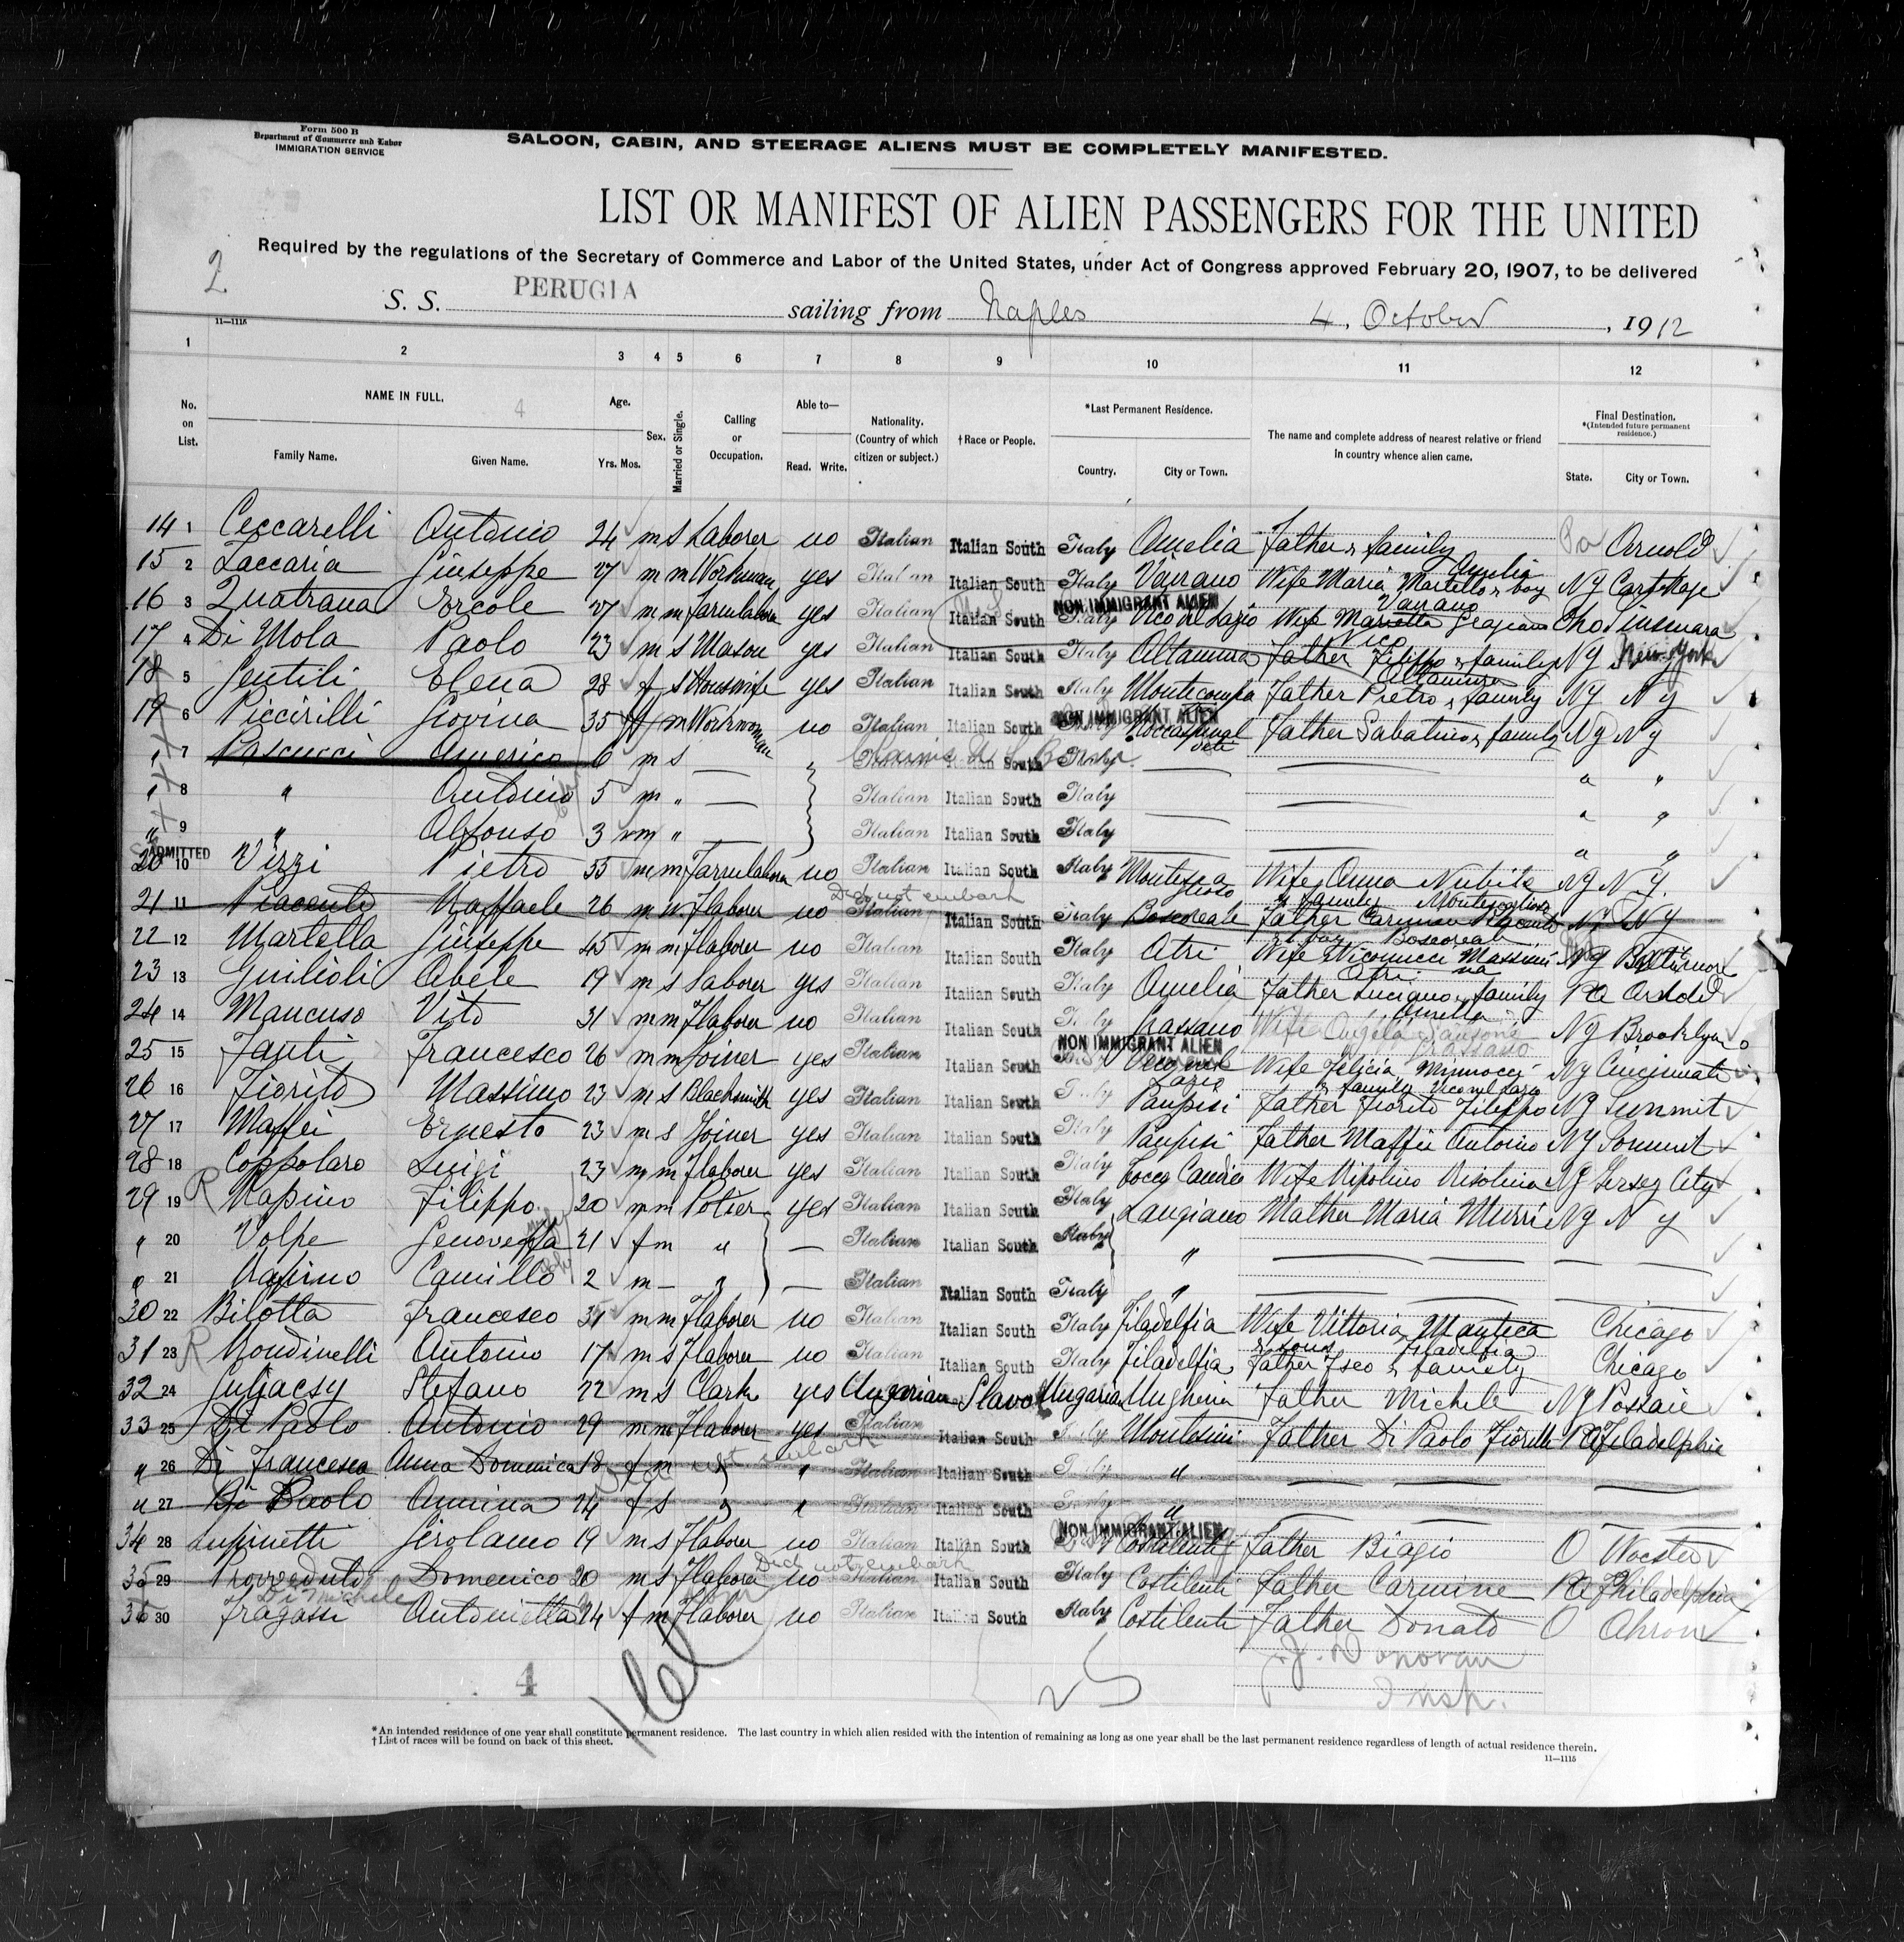 Form 500 B
Department of Commerce and Labor
IMMIGRATION SERVICE
SALOON, CABIN, AND STEERAGE ALIENS MUST BE COMPLETELY MANIFESTED.
LIST OR MANIFEST OF ALIEN PASSENGERS FOR THE UNITED
Required by the regulations of the Secretary of Commerce and Labor of the United States, under Act of Congress approved February 20, 1907, to be delivered
2
S. S. PERUGIA sailing from Naples 4. October, 1912
11—1115
1 2 3 4 5 6 7 8 9 10 11 12
No. on List. NAME IN FULL. Family Name. Given Name. 4 Age. Yrs. Mos. Sex. Married or Single. Calling or Occupation. Able to— Read. Write. Nationality. (Country of which citizen or subject.) †Race or People. *Last Permanent Residence. Country. City or Town. The name and complete address of nearest relative or friend in country whence alien came. Final Destination. *(Intended future permanent residence.) State. City or Town.
14 1 Ceccarelli Antonio 24 m s Laborer no Italian Italian South Italy Amelia Father & family Amelia Pa Arnold
15 2 Zaccaria Giuseppe 27 m m Workman yes Italian Italian South Italy Vairano Wife Maria Martello & boy Vairano NY Carthage
16 3 Quatrana Ercole 27 m m Farmlaborer yes Italian Italian South NON IMMIGRANT ALIEN Italy Vico nel Lazio Wife Marietta Vico
17 4 Di Mola Paolo 23 m s Mason yes Italian Italian South Italy Altamura Father Filippo & family Altamura NY New-York
18 5 Gentili Elena 28 f s Houswife yes Italian Italian South Italy Montecompa Father Pietro & family NY NY
19 6 Piccirilli Giovina 35 f m Workwoman no Italian Italian South NON IMMIGRANT ALIEN Italy Father Sabatino & family NY NY
" 7 Pascucci Americo 6 m s Italian Italian South Italy " "
" 8 " Antonio 5 m " Italian Italian South Italy " "
" 9 " Alfonso 3 m " Italian Italian South Italy " "
ADMITTED
20 10 Vizzi Pietro 35 m m Farmlaborer no Italian Italian South Italy Wife Anna Nubile & family NY NY.
Did not embark
21 11 Piacente Raffaele 26 m Flaborer no Italian Italian South Italy Boscoreale Father Carmine Boscoreale NY NY
22 12 Martella Giuseppe 45 m m Flaborer no Italian Italian South Italy Atri Wife Massimina Atri Baltimore
23 13 Guilioli Abele 19 m s Laborer yes Italian Italian South Italy Amelia Father Luciano & family Amelia Pa Arnold
24 14 Mancuso Vito 31 m m Flaborer no Italian Italian South Italy Grassano Wife Angela Grassano NY Brooklyn
25 15 Fanti Francesco 26 m m Joiner yes Italian Italian South NON IMMIGRANT ALIEN Italy Vico nel Lazio Wife Felicia Minnocci & family Vico nel Lazio NY Cincinnati
26 16 Fiorito Massimo 23 m s Blacksmith yes Italian Italian South Italy Paupisi Father Fiorito Filippo NY Summit
27 17 Maffei Ernesto 23 m s Joiner yes Italian Italian South Italy Paupisi Father Maffei Antonio NY Sommit
28 18 Coppolaro Luigi 23 m m Flaborer yes Italian Italian South Italy Tocco Caudio Wife NY Jersey City
29 19 R Rapino Filippo 20 m m Potier yes Italian Italian South Italy Lanciano Mather Maria Murri NY NY
" 20 Volpe Genoveffa 21 f m " Italian Italian South Italy "
" 21 Rapino Camillo 2 m " Italian Italian South Italy "
30 22 Bilotta Francesco 31 m m Flaborer no Italian Italian South Italy Filadelfia Wife Vittoria Manteca & sons Filadelfia Chicago
31 23 R Rondinelli Antonio 17 m s Flaborer no Italian Italian South Italy Filadelfia Father Fseo & family Chicago
32 24 Stefano 22 m s Clark yes Ungarian Slavok Ungarian Father Michele NY Possaic
33 25 Di Paolo Antonio 29 m m Flaborer yes Italian Italian South Italy Father Di Paolo Fiorelli Pa Filadelphia
" 26 Di Francesco Anna Domenica 18 f m " " Italian Italian South Italy "
" 27 Di Paolo Annina 24 f s " " Italian Italian South Italy "
34 28 Lupinetti Girolamo 19 m s Flaborer no Italian Italian South NON IMMIGRANT ALIEN Italy Costilenti Father Biagio O Wooster
Did not embark
35 29 Provveduto Domenico 20 m s Flaborer no Italian Italian South Italy Costilenti Father Carmine Pa Philadelphia
Di Michele
36 30 Fragassi Antonietta 24 f m Flaborer no Italian Italian South Italy Costilenti Father Donato O Akron
J. J. Donovan
Insp.
4
25
*An intended residence of one year shall constitute permanent residence. The last country in which alien resided with the intention of remaining as long as one year shall be the last permanent residence regardless of length of actual residence therein.
†List of races will be found on back of this sheet.
11—1115